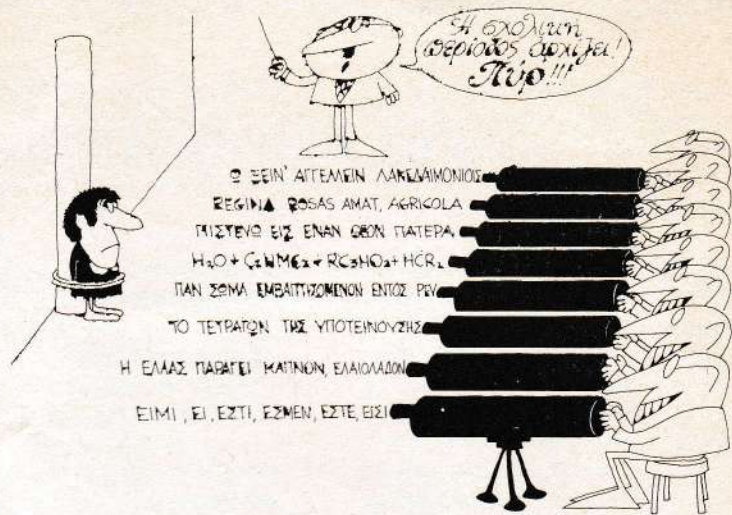 Ἡ σχολική
περίοδος ἀρχίζει!
Πύρ!!!
Ω ΞΕΙΝ' ΑΓΓΕΛΛΕΙΝ ΛΑΚΕΔΑΙΜΟΝΙΟΙΣ
REGINA ROSAS AMAT, AGRICOLA
ΠΙΣΤΕΥΩ ΕΙΣ ΕΝΑΝ ΘΕΟΝ ΠΑΤΕΡΑ
H₂O +
ΠΑΝ ΣΩΜΑ ΕΜΒΑΠΤΙΖΟΜΕΝΟΝ ΕΝΤΟΣ ΡΕΥ
ΤΟ ΤΕΤΡΑΓΩΝ ΤΗΣ ΥΠΟΤΕΙΝΟΥΣΗΣ
Η ΕΛΛΑΣ ΠΑΡΑΓΕΙ ΚΑΠΝΟΝ, ΕΛΑΙΟΛΑΔΟΝ
ΕΙΜΙ, ΕΙ, ΕΣΤΙ, ΕΣΜΕΝ, ΕΣΤΕ, ΕΙΣΙ